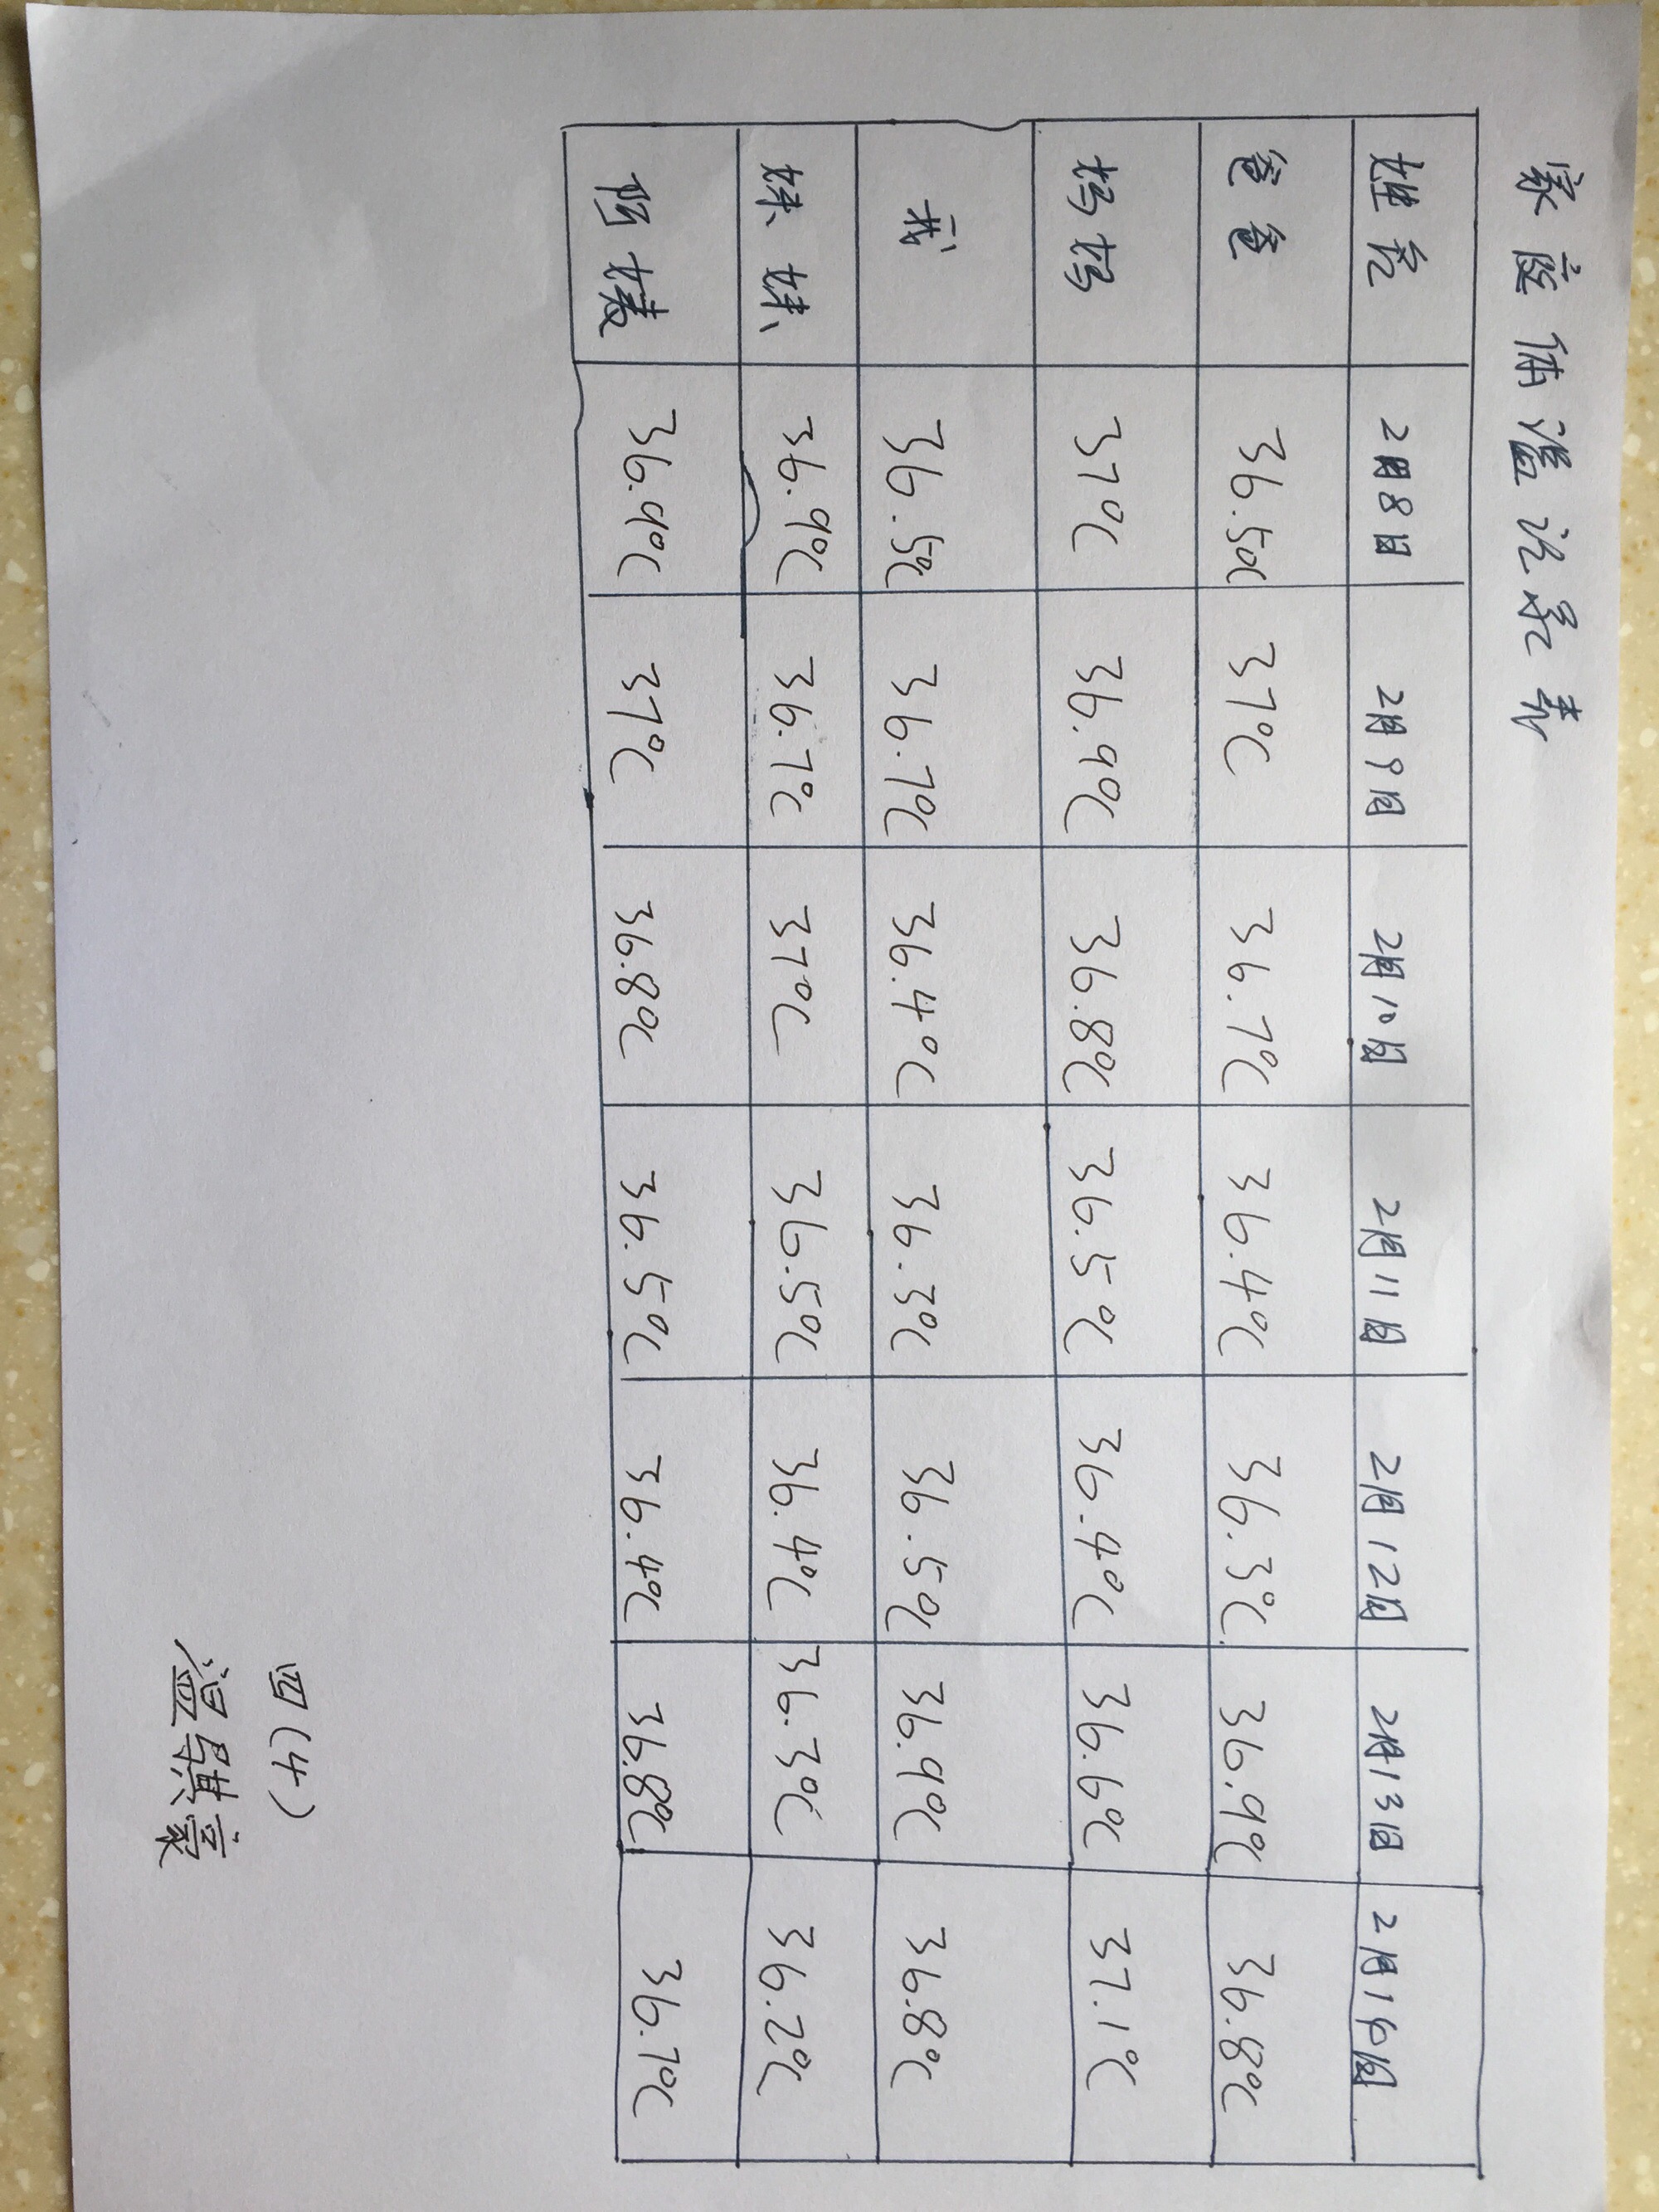 家庭体温记录表
姓名 2月8日 2月9日 2月10日 2月11日 2月12日 2月13日 2月14日
爸爸 36.5℃ 37℃ 36.7℃ 36.4℃ 36.3℃ 36.9℃ 36.8℃
妈妈 37℃ 36.9℃ 36.8℃ 36.5℃ 36.4℃ 36.6℃ 37.1℃
我 36.5℃ 36.7℃ 36.4℃ 36.3℃ 36.5℃ 36.9℃ 36.8℃
妹妹 36.9℃ 36.7℃ 37℃ 36.5℃ 36.4℃ 36.3℃ 36.2℃
阿姨 36.9℃ 37℃ 36.8℃ 36.5℃ 36.4℃ 36.8℃ 36.7℃
四(4)